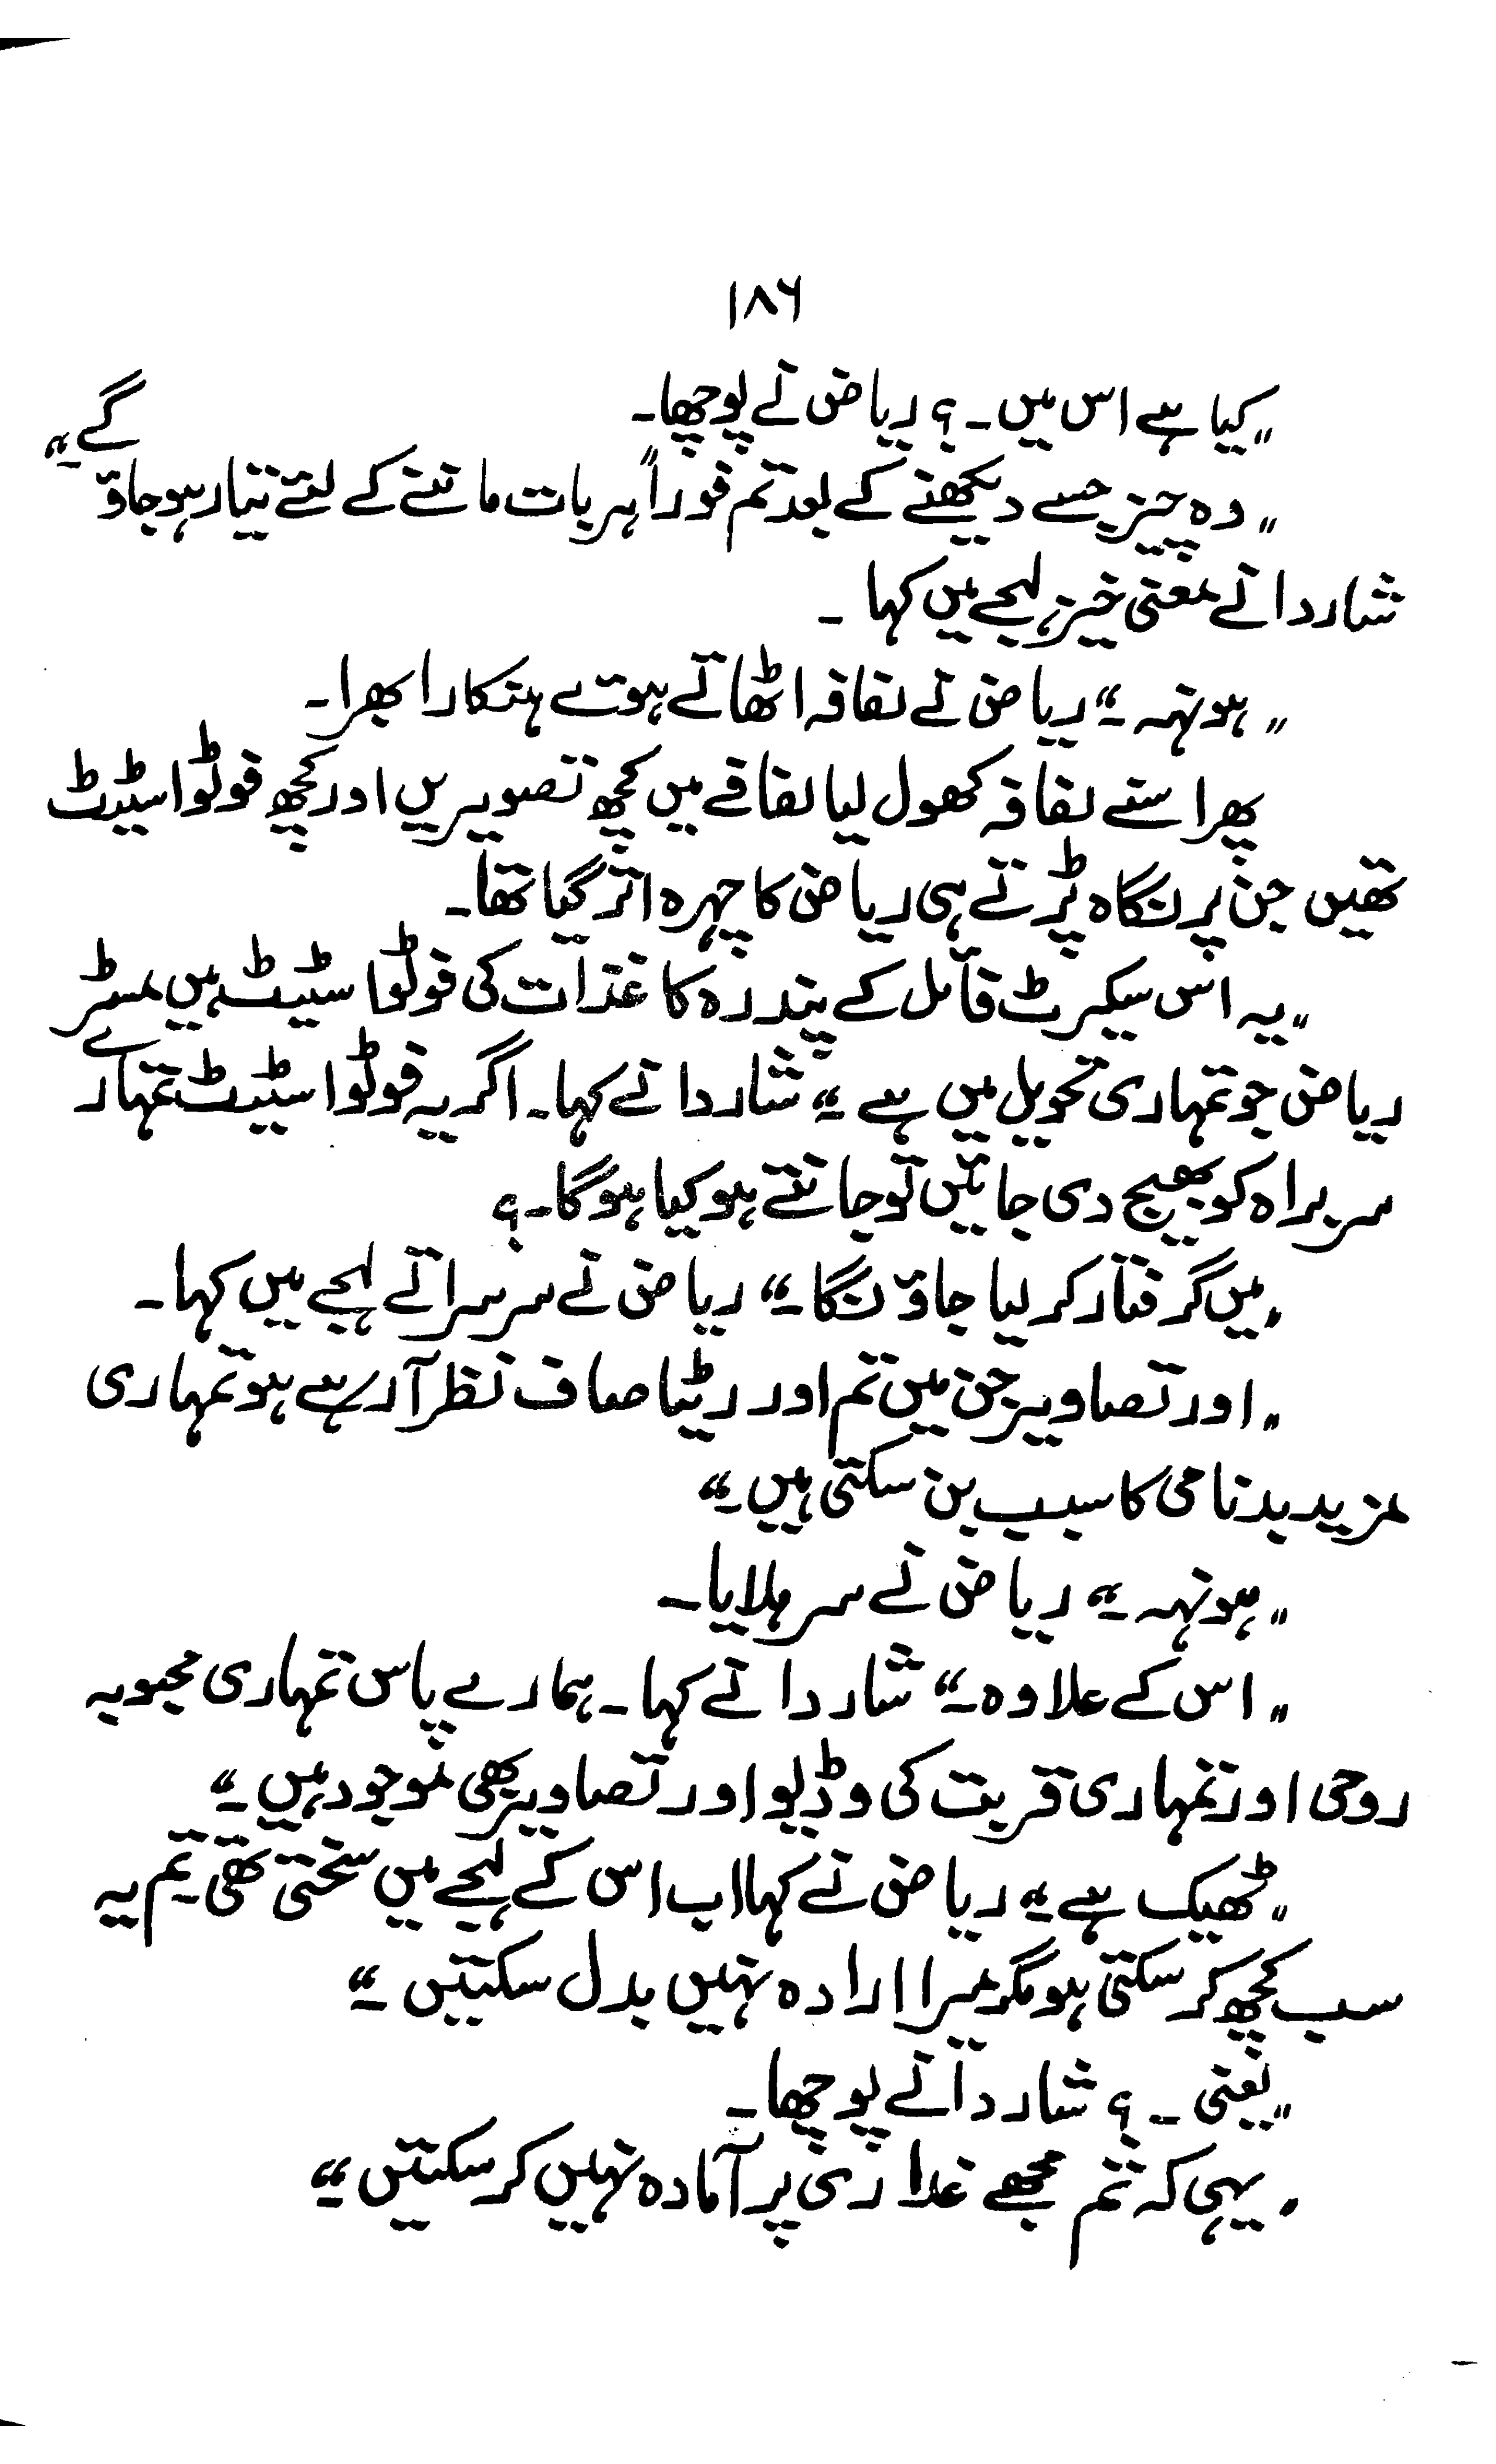 ۱۸۶
„کیا ہے اس میں ۔؟ ریاض نے پوچھا۔
„وہ چیز جسے دیکھنے کے بعد تم فوراً ہر بات ماننے کے لئے تیار ہو جاؤ گے۔“
شاردا نے معنی خیز لہجے میں کہا ۔
„ہونہہ ۔“ ریاض نے لفافہ اٹھاتے ہوئے ہنکارا بھرا۔
پھر اسنے لفافہ کھول لیا لفافے میں کچھ تصویریں اور کچھ فوٹو اسٹیٹ
تھیں جن پر نگاہ پڑتے ہی ریاض کا چہرہ اتر گیا تھا۔
„یہ اس سیکرٹ فائل کے پندرہ کاغذات کی فوٹو اسٹیٹ ہیں مسٹر
ریاض جو تمہاری تحویل میں ہے ۔“ شاردا نے کہا۔ اگر یہ فوٹو اسٹیٹ تمہارے
سربراہ کو بھیج دی جائیں تو جانتے ہو کیا ہو گا۔؟
„میں گرفتار کر لیا جاؤنگا ۔“ ریاض نے سرسراتے لہجے میں کہا۔
„اور تصاویر جن میں تم اور ریٹا صاف نظر آ رہے ہو تمہاری
مزید بدنامی کا سبب بن سکتی ہیں ۔“
„ہونہہ ۔“ ریاض نے سر ہلایا۔
„اس کے علاوہ ۔“ شاردا نے کہا۔ ہمارے پاس تمہاری محبوبہ
روحی اور تمہاری قربت کی وڈیو اور تصاویر بھی موجود ہیں ۔“
„ٹھیک ہے ۔“ ریاض نے کہا اب اس کے لہجے میں سختی تھی۔ تم یہ
سب کچھ کر سکتی ہو مگر میرا ارادہ نہیں بدل سکتیں ۔“
„یعنی ۔؟ شاردا نے پوچھا۔
„یہی کہ تم مجھے غداری پر آمادہ نہیں کر سکتیں ۔“